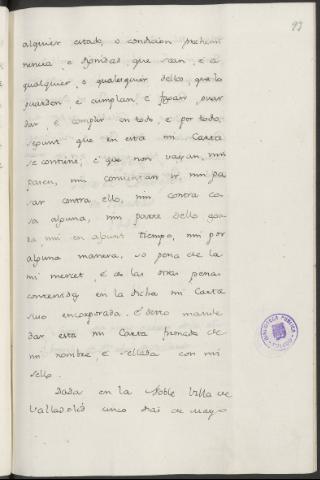 93
alguier estado, o condicion prehemi
nencia, e Dignidat que sean, e a
qualquier, o qualesquier dellos, que lo
guarden e cumplan, e fagan guar
dar, e complir en todo, e por todo,
segunt que en esta mi Carta
se contiene, e que non vayan, nin
pasen, nin consientan ir, nin pa
sar contra ello, nin contra co
sa alguna, nin parte dello ago
ra nin en algunt tiempo, nin por
alguna manera, so pena de la
mi merced, e de las otras penas
contenidas en la dicha mi Carta
suso encorporada. E desto mande
dar esta mi Carta firmada de
mi nombre e sellada con mi
sello.
Dada en la Noble Villa de
Valladolid cinco dias de mayo
BIBLIOTECA PUBLICA